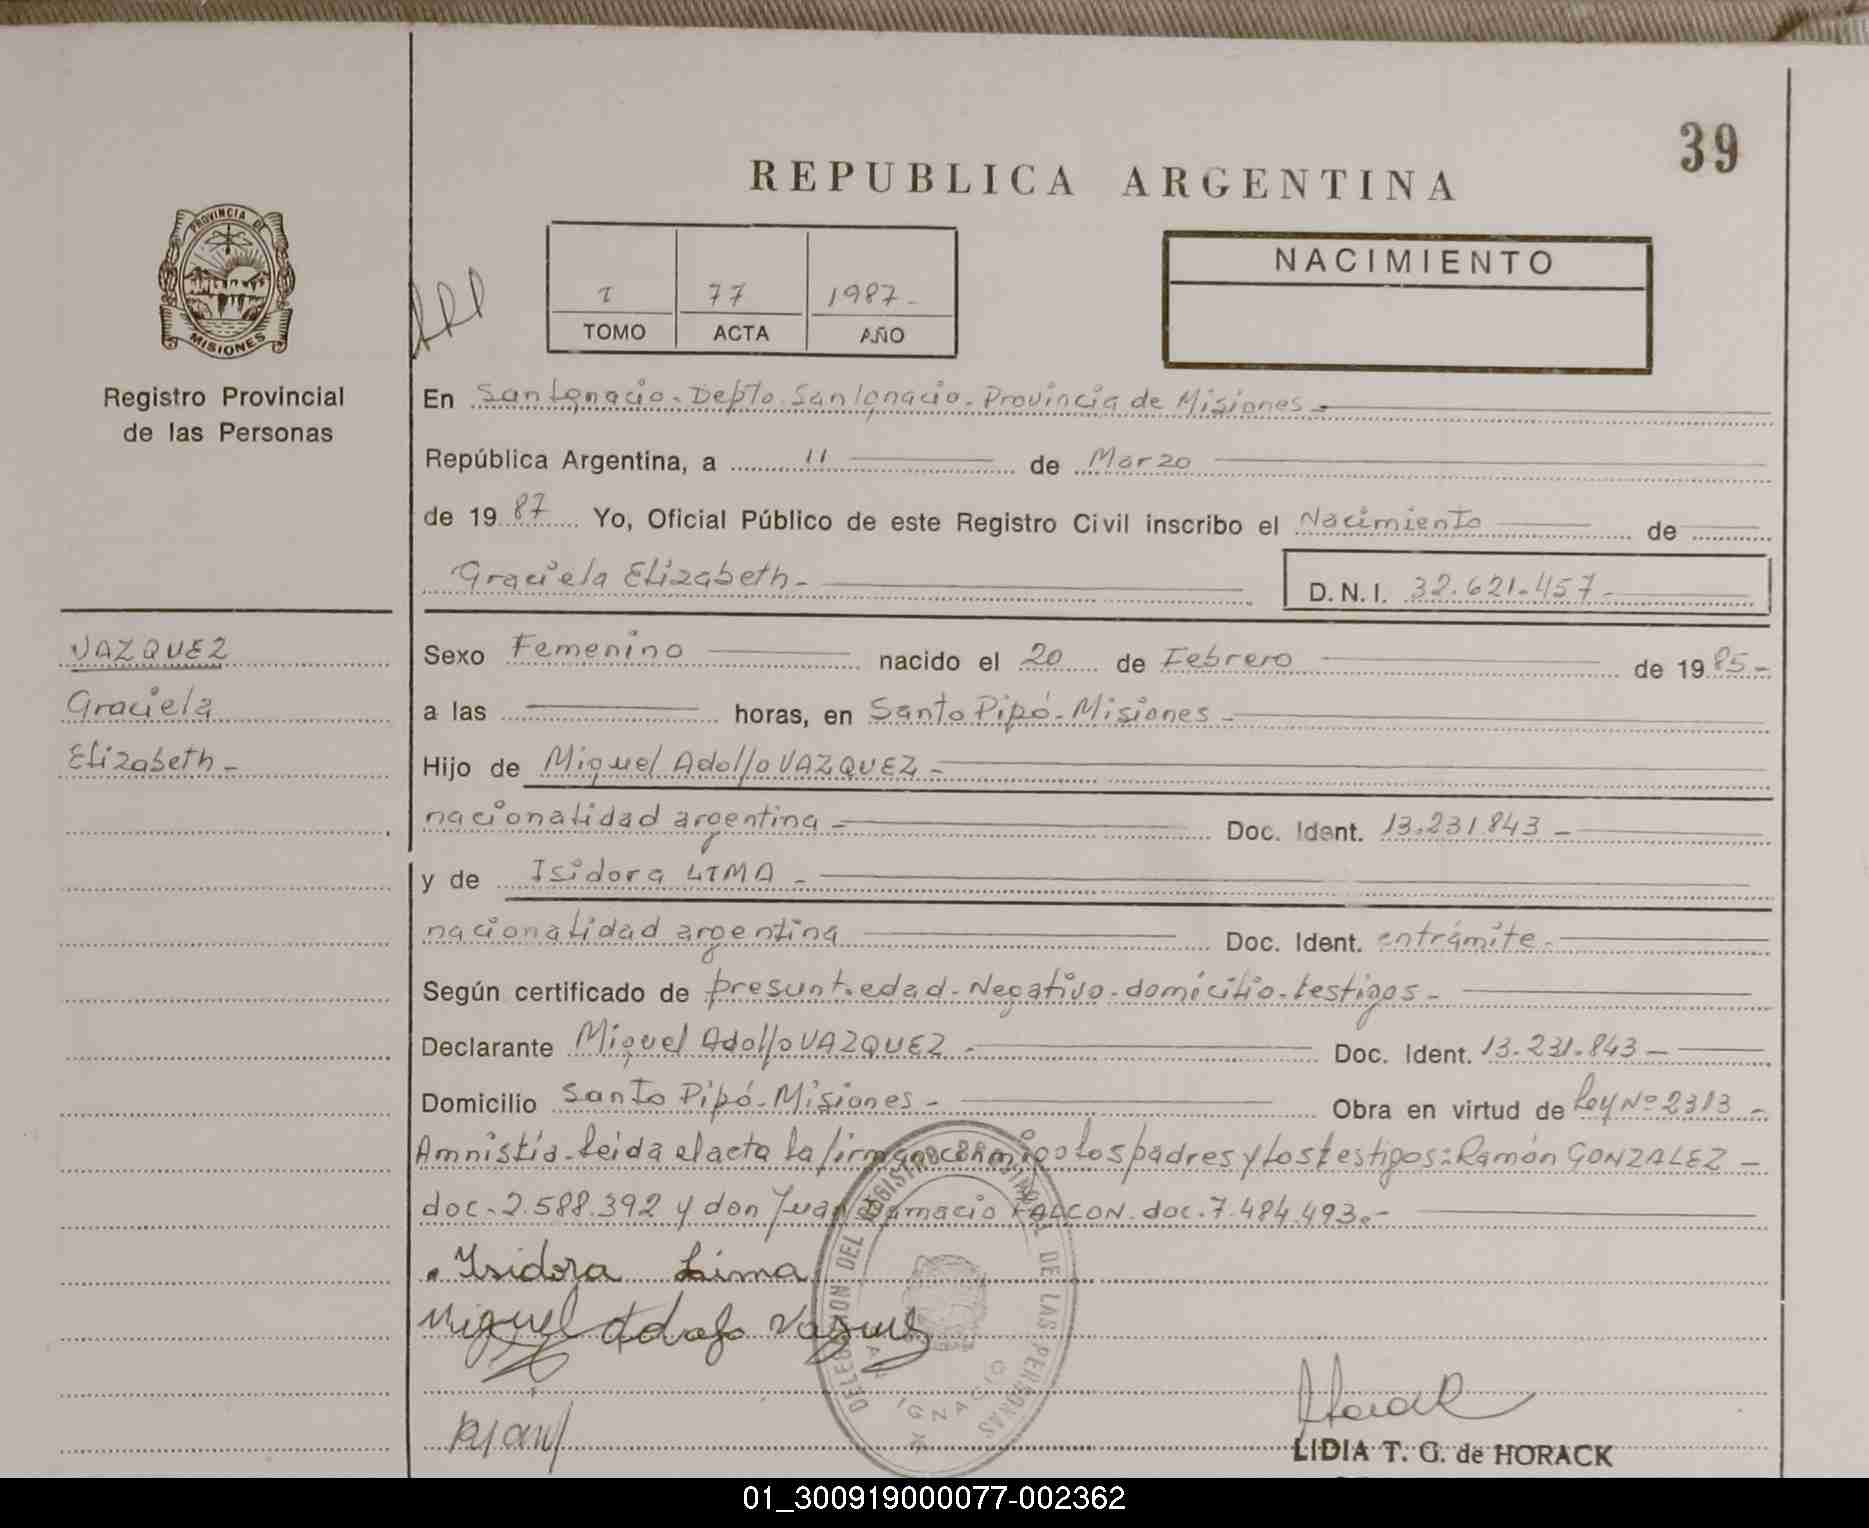 39
REPUBLICA ARGENTINA
PROVINCIA DE
MISIONES
Registro Provincial
de las Personas
I 77 1987-
TOMO ACTA AÑO
NACIMIENTO
En San Ignacio - Depto. San Ignacio - Provincia de Misiones -
República Argentina, a 11 de Marzo
de 1987 Yo, Oficial Público de este Registro Civil inscribo el Nacimiento de
Graciela Elizabeth - D.N.I. 32.621.457 -
VAZQUEZ
Graciela
Elizabeth -
Sexo Femenino nacido el 20 de Febrero de 1985 -
a las horas, en Santo Pipó - Misiones -
Hijo de Miguel Adolfo VAZQUEZ -
nacionalidad argentina - Doc. Ident. 13.231.843 -
y de Isidora LIMA -
nacionalidad argentina Doc. Ident. en trámite -
Según certificado de presunt. edad - Negativo - domicilio - testigos -
Declarante Miguel Adolfo VAZQUEZ - Doc. Ident. 13.231.843 -
Domicilio Santo Pipó - Misiones - Obra en virtud de Ley Nº 2313 -
Amnistía - leida el acta la firman conmigo los padres y los testigos: Ramón GONZALEZ -
doc. 2.588.392 y don Juan Damacio FALCON - doc. 7.484.493.-
Isidora Lima
Miguel Adolfo Vazquez
DELEGACION DEL REGISTRO PROVINCIAL DE LAS PERSONAS
SAN IGNACIO
LIDIA T. G. de HORACK
01_300919000077-002362